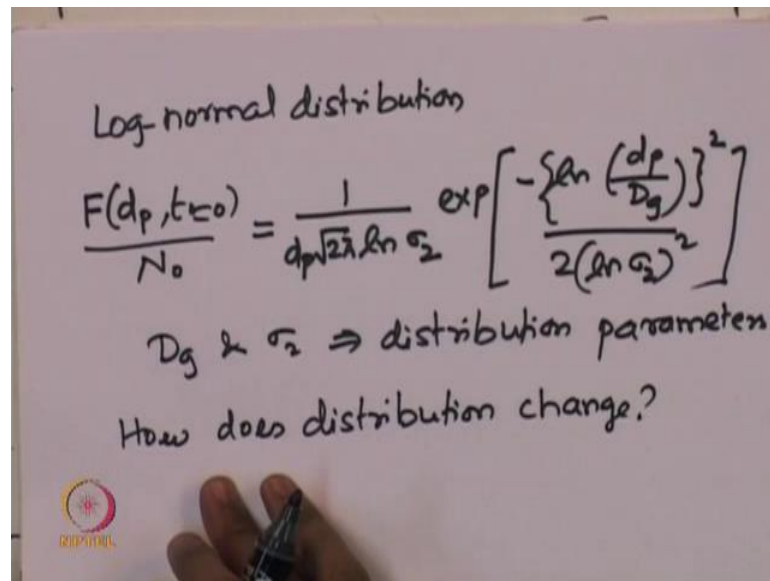 Log-normal distribution
F(dp, t=0)/N₀ = 1/(dp√2π ln σ₂) exp[-{ln (dp/Dg)}²/2(ln σ₂)²]
Dg & σ₂ ⇒ distribution parameters
How does distribution change?
NPTEL